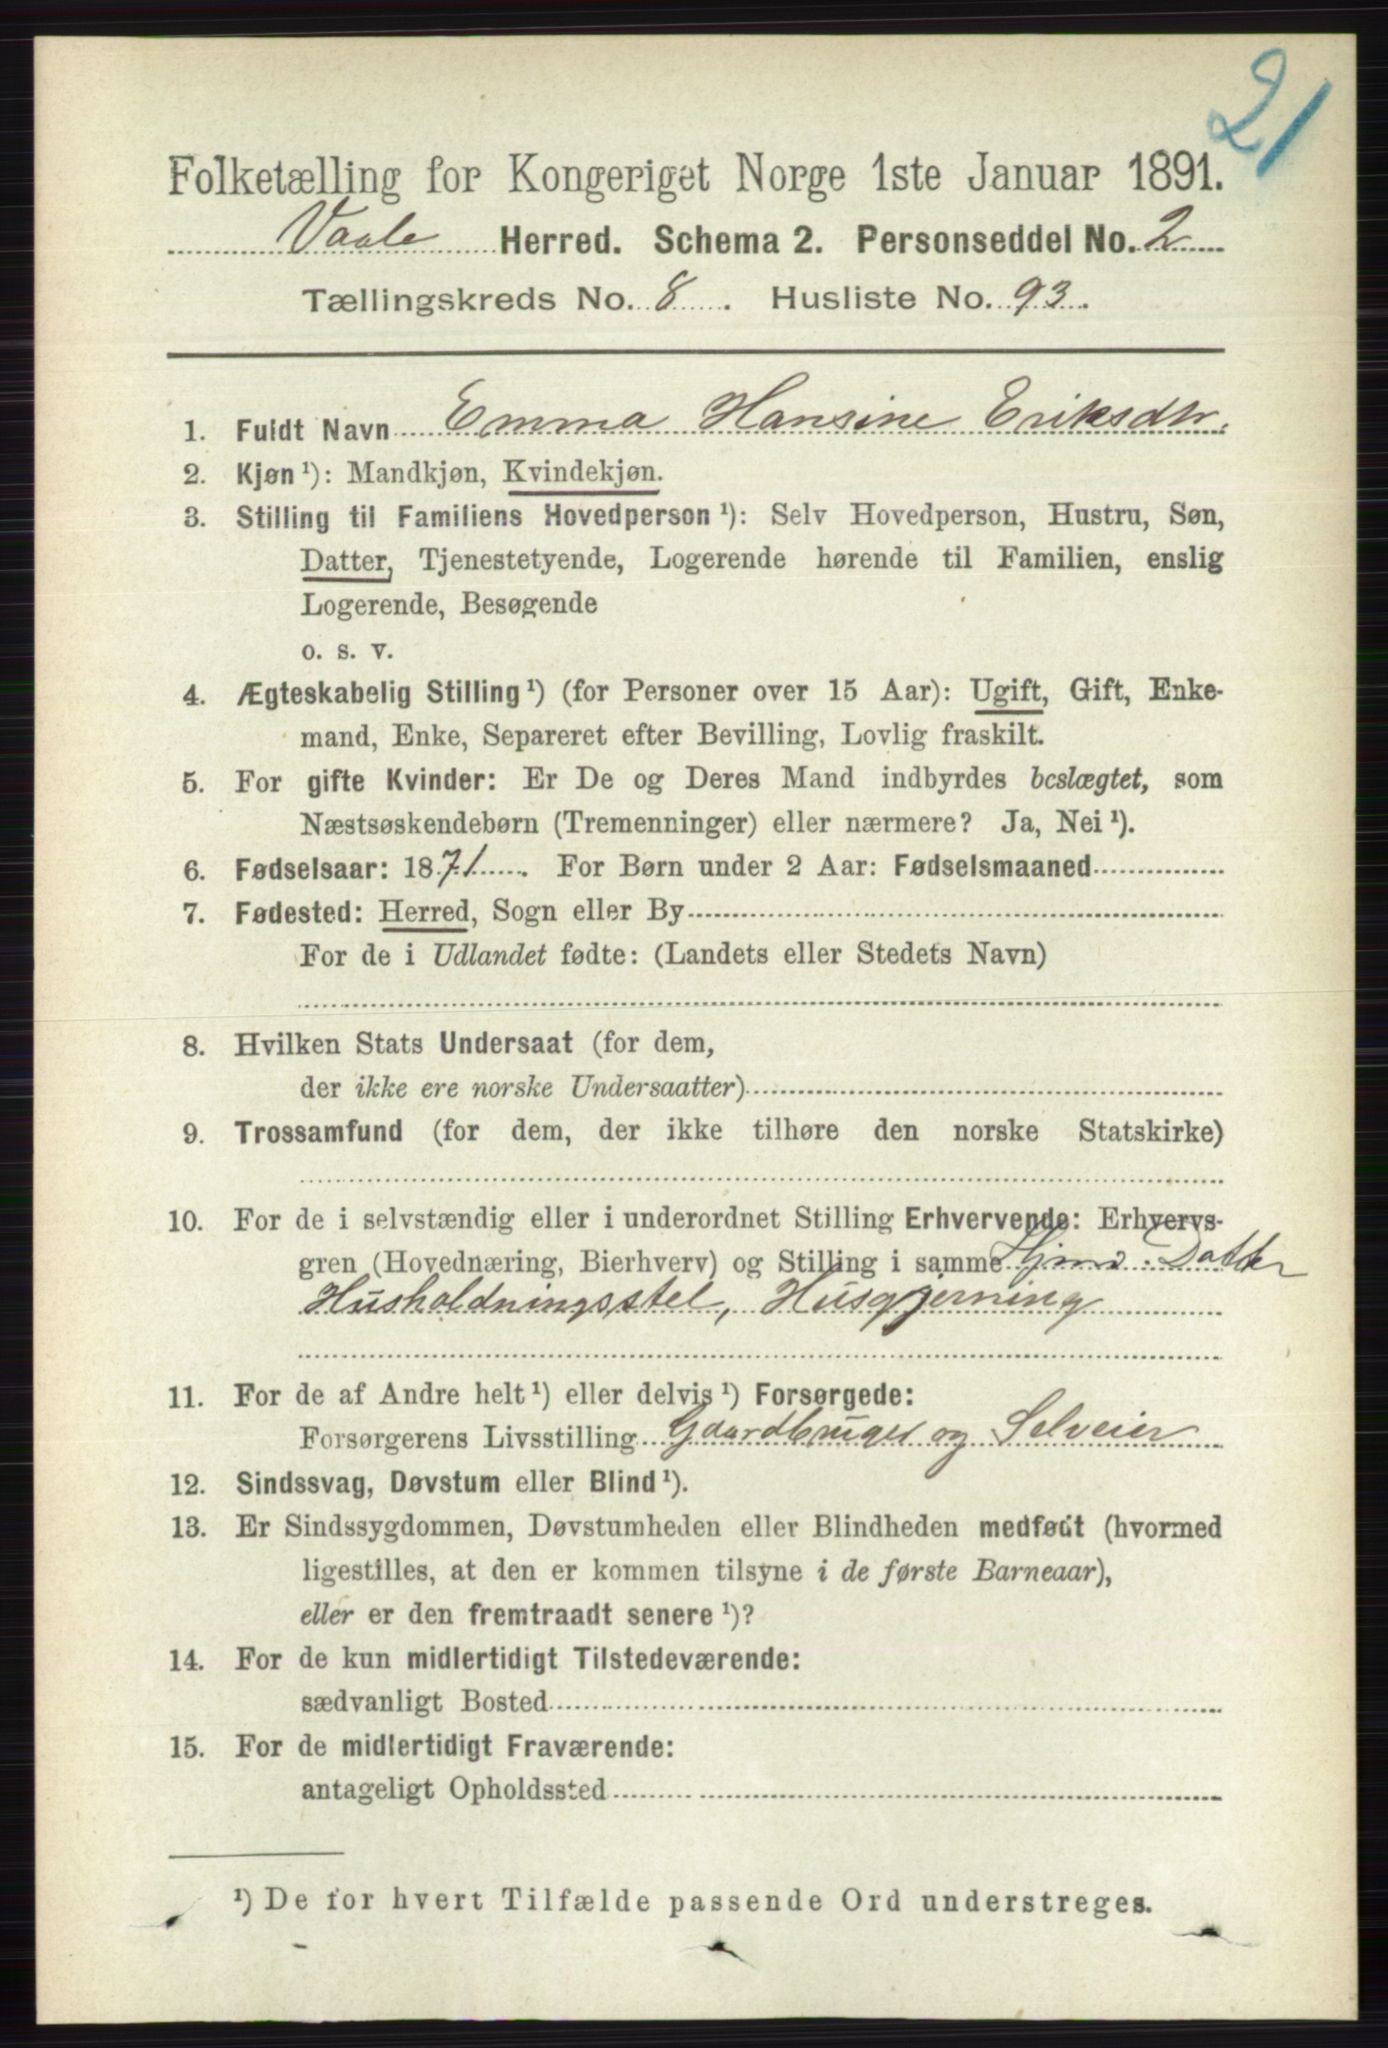 21
Folketælling for Kongeriget Norge 1ste Januar 1891.
Vaale Herred. Schema 2. Personseddel No. 2
Tællingskreds No. 8. Husliste No. 93.
1. Fuldt Navn Emma Hansine Eriksdtr.
2. Kjøn ¹): Mandkjøn, Kvindekjøn.
3. Stilling til Familiens Hovedperson ¹): Selv Hovedperson, Hustru, Søn,
Datter, Tjenestetyende, Logerende hørende til Familien, enslig
Logerende, Besøgende
o. s. v.
4. Ægteskabelig Stilling ¹) (for Personer over 15 Aar): Ugift, Gift, Enke-
mand, Enke, Separeret efter Bevilling, Lovlig fraskilt.
5. For gifte Kvinder: Er De og Deres Mand indbyrdes beslægtet, som
Næstsøskendebørn (Tremenninger) eller nærmere? Ja, Nei ¹).
6. Fødselsaar: 1871. For Børn under 2 Aar: Fødselsmaaned
7. Fødested: Herred, Sogn eller By
For de i Udlandet fødte: (Landets eller Stedets Navn)
8. Hvilken Stats Undersaat (for dem,
der ikke ere norske Undersaatter)
9. Trossamfund (for dem, der ikke tilhøre den norske Statskirke)
10. For de i selvstændig eller i underordnet Stilling Erhvervende: Erhvervs-
gren (Hovednæring, Bierhverv) og Stilling i samme Hjmv. Datter
Husholdningsstel, Husgjerning
11. For de af Andre helt ¹) eller delvis ¹) Forsørgede:
Forsørgerens Livsstilling Gaardbruger og Selveier
12. Sindssvag, Døvstum eller Blind ¹).
13. Er Sindssygdommen, Døvstumheden eller Blindheden medfødt (hvormed
ligestilles, at den er kommen tilsyne i de første Barneaar),
eller er den fremtraadt senere ¹)?
14. For de kun midlertidigt Tilstedeværende:
sædvanligt Bosted
15. For de midlertidigt Fraværende:
antageligt Opholdssted
¹) De for hvert Tilfælde passende Ord understreges.